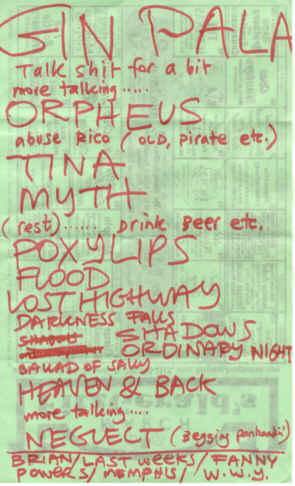 GIN PALA
Talk shit for a bit
more talking.....
ORPHEUS
abuse Rico (OLD, pirate etc.)
TINA
MYTH
(rest)....... drink Beer etc.
POXYLIPS
FLOOD
LOST HIGHWAY
DARKNESS FALLS
SHADOWS
ORDINARY NIGHT
BALLAD OF SALLY
HEAVEN & BACK
more talking....
NEGLECT (Begging
BRIAN/LAST WEEKS/FANNY
POWERS/MEMPHIS/W.W.Y.